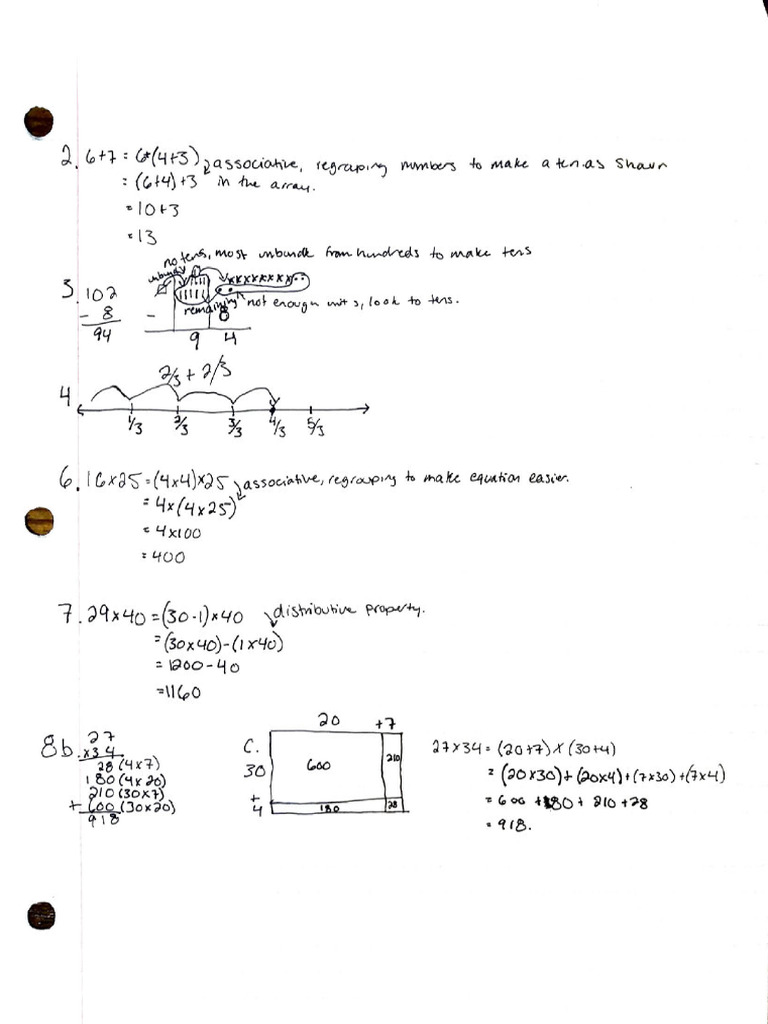 2. 6+7 = 6+(4+3) associative, regrouping numbers to make a ten as Shawn
= (6+4)+3 in the array.
= 10+3
= 13
no tens, most unbundle from hundreds to make tens
unbundle
3. 102
- 8
94
xxxxxxxx
remaining not enough units, look to tens.
- 8
9 4
2/3 + 2/3
4
1/3 2/3 3/3 4/3 5/3
6. 16x25 = (4x4)x25 associative, regrouping to make equation easier.
= 4x(4x25)
= 4x100
= 400
7. 29x40 = (30-1)x40 distributive property.
= (30x40)-(1x40)
= 1200-40
= 1160
8b. 27
x34
28 (4x7)
180 (4x20)
210 (30x7)
+ 600 (30x20)
918
C. 20 +7
30 600 210
+
4 180 28
27x34 = (20+7) x (30+4)
= (20x30)+(20x4)+(7x30)+(7x4)
= 600 + 80 + 210 + 28
= 918.